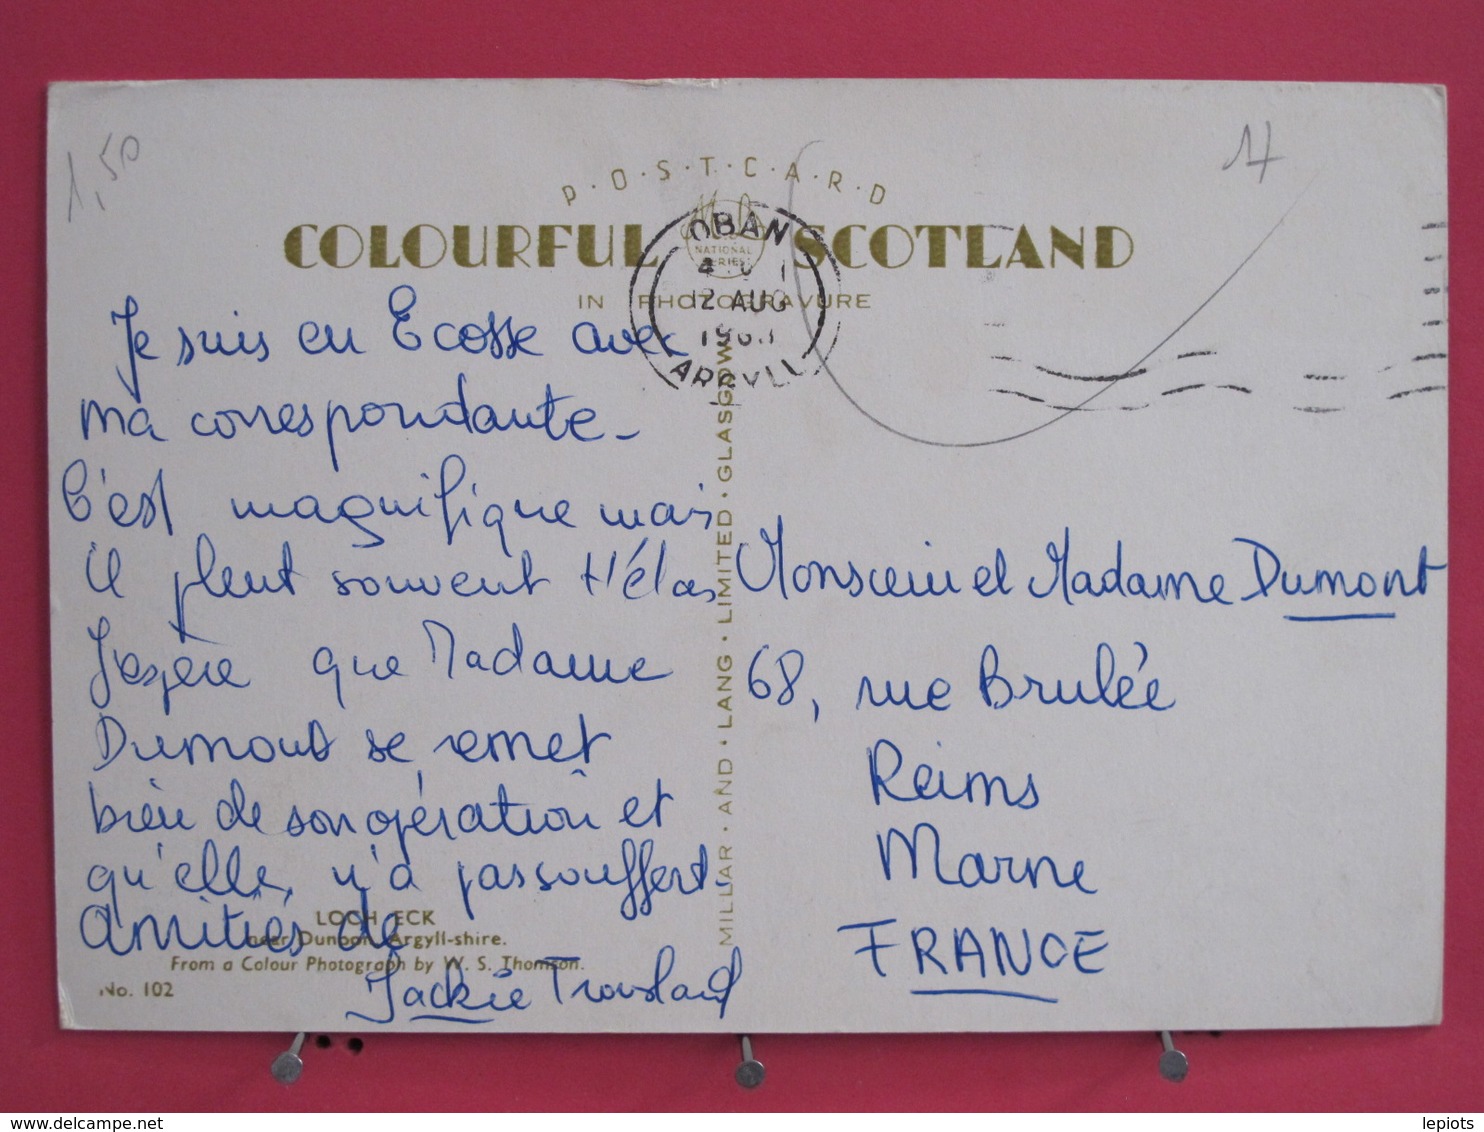 1,50
17
P·O·S·T·C·A·R·D
COLOURFUL SCOTLAND
NATIONAL
SERIES
IN PHOTOGRAVURE
OBAN
12 AUG
1963
ARGYLL
Je suis en Ecosse avec
ma correspondante -
C'est magnifique mais
il pleut souvent Hélas
J'espère que Madame
Dumont se remet
bien de son opération et
qu'elle n'a pas souffert.
Amitiés de
Jackie
LOCH ECK
near Dunoon, Argyll-shire.
From a Colour Photograph by W. S. Thomson.
No. 102
MILLAR · AND · LANG · LIMITED · GLASGOW
Monsieur et Madame Dumont
68, rue Brulée
Reims
Marne
FRANCE
lepiots